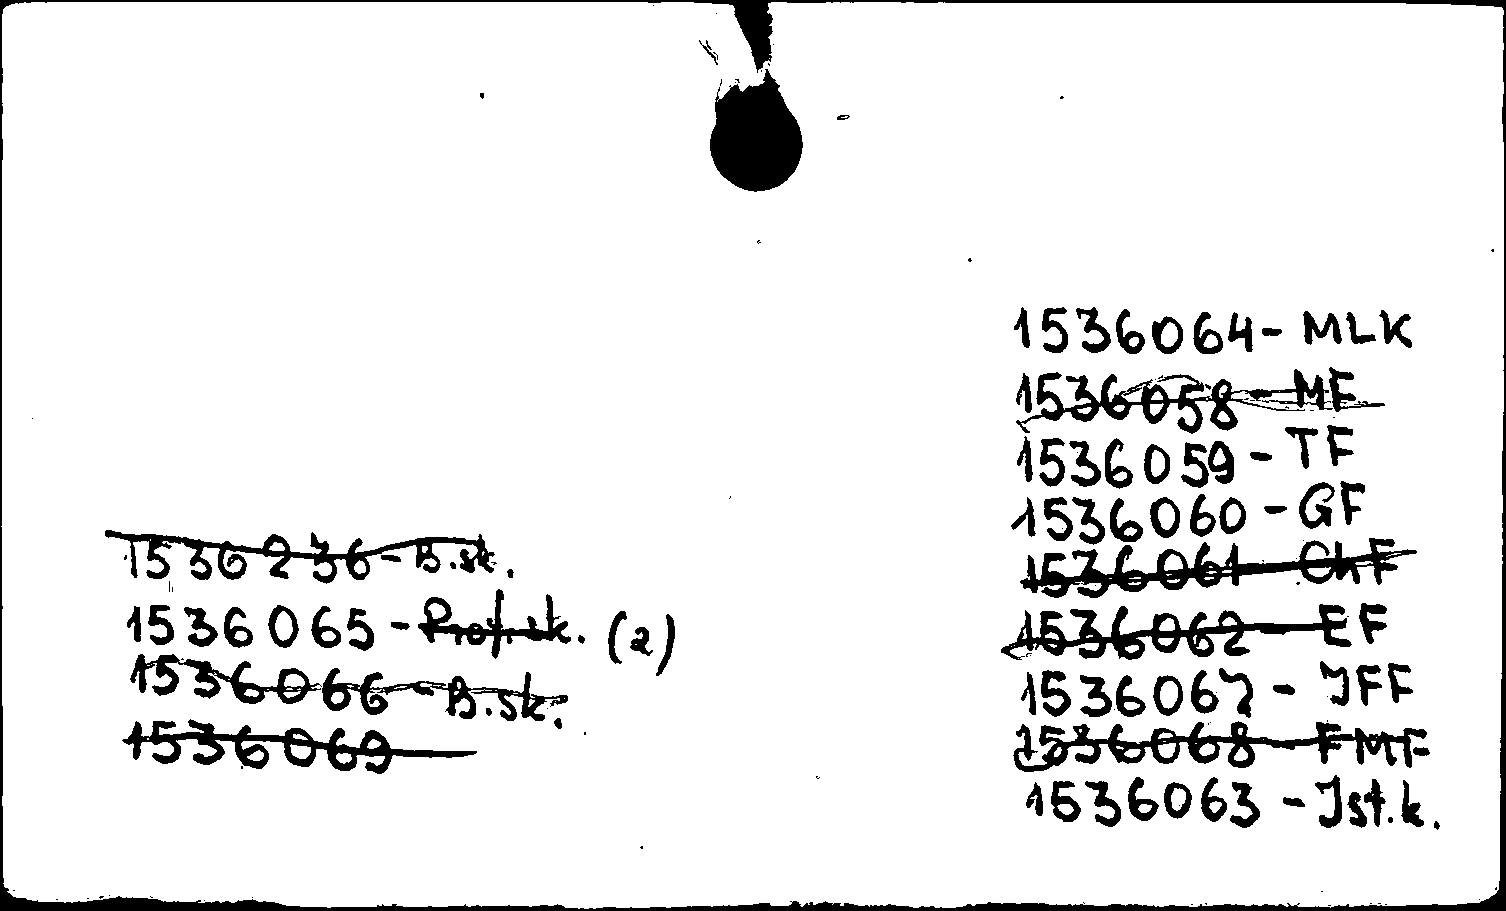 1536236 - B.sk.
1536065 - Prof.sk. (2)
1536066 - B.sk.
1536069
1536064 - MLK
1536058 - MF
1536059 - TF
1536060 - GF
1536061 - ChF
1536062 - EF
1536067 - JFF
1536068 - FMF
1536063 - Jst.k.